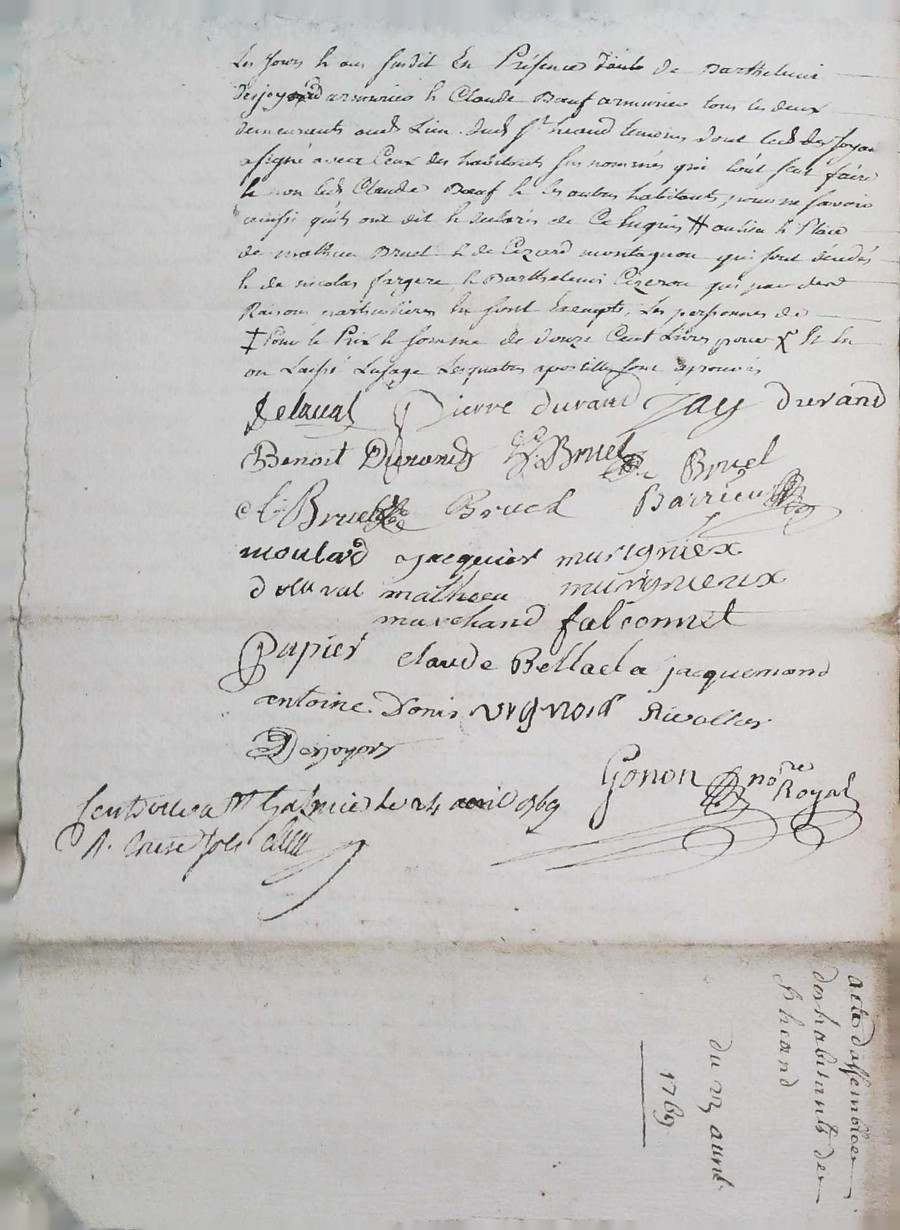 Les Jours & an susdit En Présence de Barthelemi
Desjoyaux armurier & Claude Bœuf armurier tous les deux
demeurants aud Lieu dud St heand temoins dont led desJoyau
a signé avec Ceux des habitants sus nommés qui l'ont sçu faire
& non led Claude Bœuf & les autres habitants, pour ne savoir
ainsi qu'ils ont dit de ce Enquis # au lieu & Place
de mathieu Bruel & de Cezard montagnon qui sont décédés
& de nicolas fargere & Barthelemi Cizeron qui par des
Raisons particulieres En sont Exempts, les personnes de
‡ Pour le Prix & somme de douze Cent Livres pour
on Laissé Lusage Les quatre apostilles sont aprouvés
Delaval Pierre durand Jay durand
Benoit Durand Bruel Bruel
Bruel Bruel Barrieu
moulard Jacquier murigniex
dolaval matheeu murignieux
marchand falconnet
Papier Claude Bellacla jacquemond
antoine Donis vignoid Rivollier
Desjoyors
Gonon nore Royal
Controllé a St Galmier le 24 avril 1769
R. treise sols
acte dassemblée
des habitants de
St heand
du 23 avril
1769